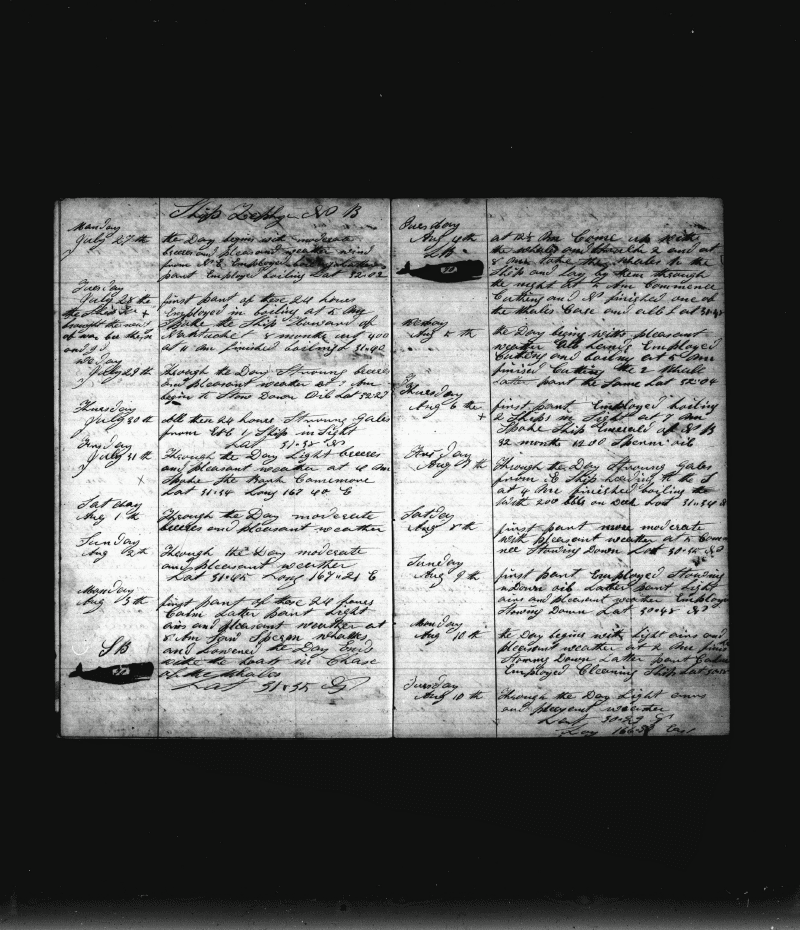 Ship Zephyr N B
Monday
July 27th
the Day begins with moderate
breeses and pleasant weather wind
from Employed
part Employd boiling Lat 32.02
Tuesday
July 28 th
first part of these 24 hours
Employed in boiling at 5 Am
Spoke the Ship of
Nantucket months 400
at 4 Am finished boiling 31.40
brought the news
of war
and
Weday
July 29th
through the Day Stroung breeses
and pleasant weather at Am
begin to Stow Down Oil Lat 32.27
Thursday
July 30th
all these 24 hours Stroung Gales
from Ship in Sight
Lat 31.38
Friday
July 31th
Through the Day Light breeses
and pleasant weather at 4 Am
Spoke the Bark
Lat 31.34 Long 167.40 E
Satday
Aug 1th
Through the Day moderate
breeses and pleasant weather
Sunday
Aug 2th
Through the Day moderate
and pleasant weather
Lat 31.45 Long 167.21 E
Monday
Aug 3th
first part of these 24 hours
Calm Later part Light
airs and pleasant weather at
8 Am Saw Sperm whales
and Lowered the Day Ends
with the boats in Chase
of the whales
Lat 31.35
SB
Tuesday
Aug 4th
SB
at Am Come up with
the whales and Struck 2 and at
8 Am take the whales to the
Ship and Lay by them through
the night at 5 Am Commence
Cutting and finished one of
the whales Case and all Lat
Weday
Aug 5th
the Day being with pleasant
weather all hands Employed
Cutting and boiling at 5 Am
finised Cutting the 2 whale
Later part the Same Lat 32.04
Thursday
Aug 6 th
first part Employed boiling
2 Ships in Sight at 7 Am
Spoke Ship Emerald of N B
32 months 1200 Sperm oil
Friday
Aug 7th
Through the Day Stroung Gales
from E Ship heading to the S
at 4 Am finished boiling the
with 200 bbls on Deck Lat 31.34
Satday
Aug 8th
first part more moderate
with pleasant weather at 5 Com
nce Stowing Down Lat 30.55
Sunday
Aug 9th
first part Employed Stowing
Down oil Later part Light
airs and pleasant weather Employd
Stowing Down Lat 30.48
Monday
Aug 10th
the Day begins with Light airs and
pleasant weather at 2 Am finis
Stowing Down Later part Calm
Employed Cleaning Ship Lat
Tuesday
Aug 10th
through the Day Light airs
and pleasent weather
Lat 30.29
Long 166.38 East